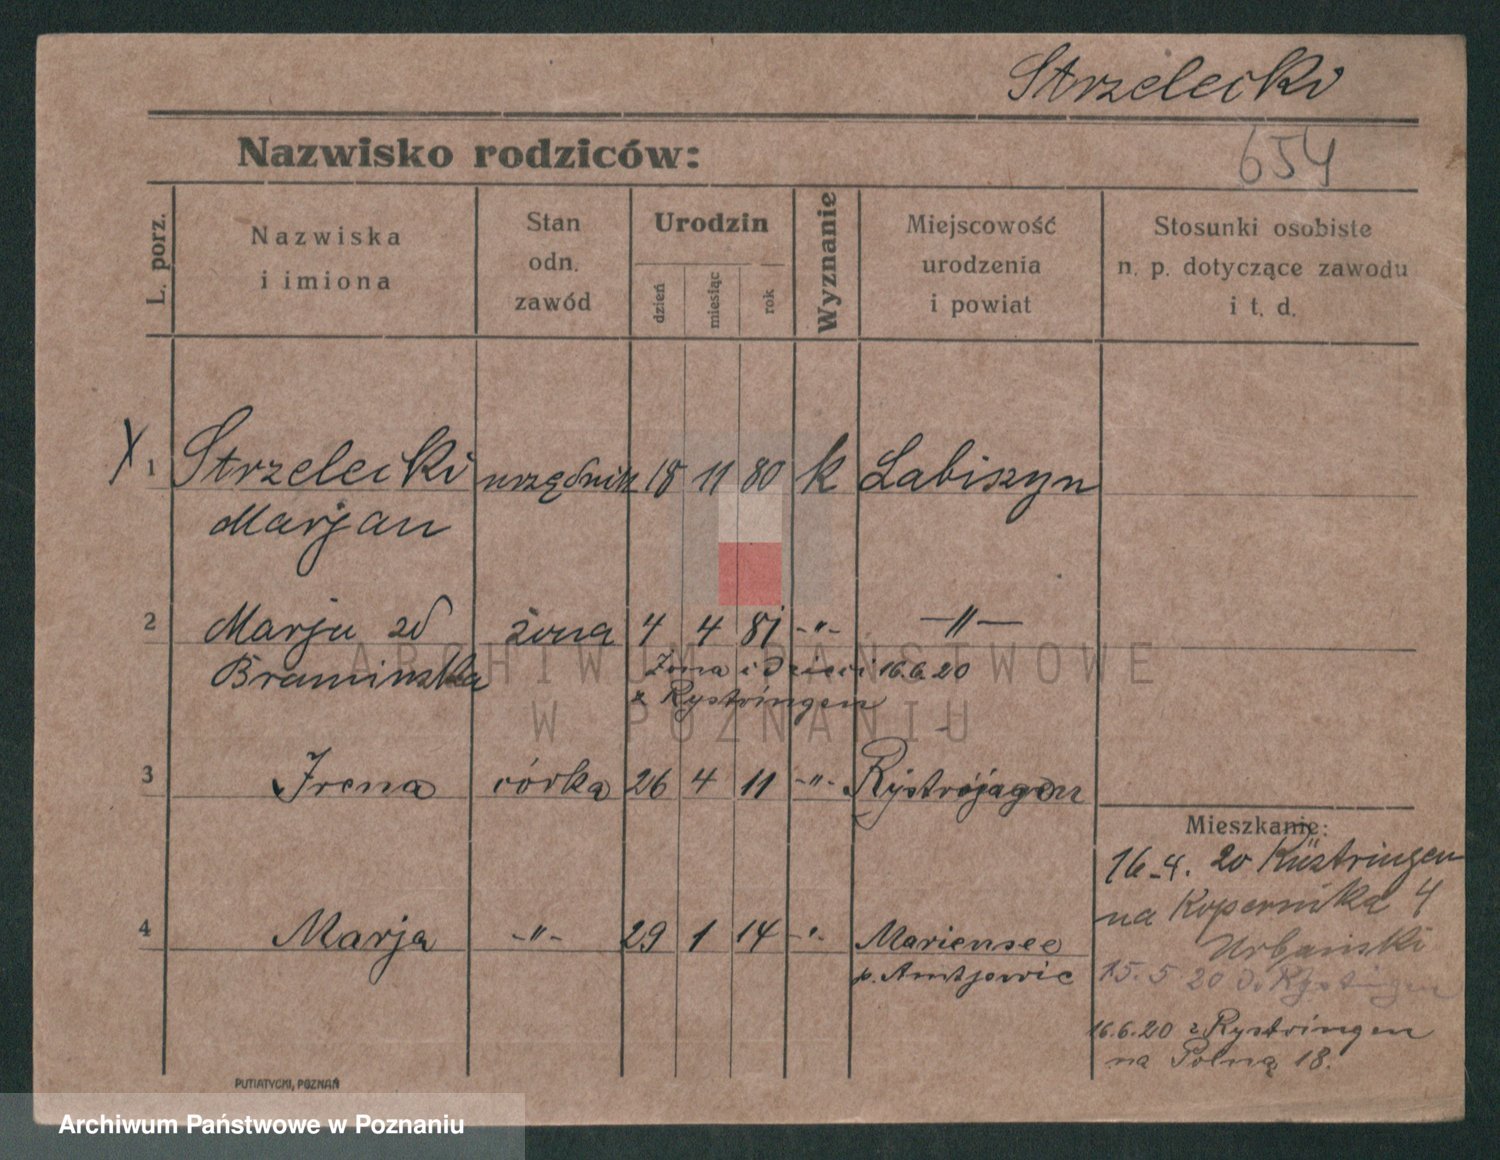 Strzelecki
654
Nazwisko rodziców:
L. porz.
Nazwiska
i imiona
Stan
odn.
zawód
Urodzin
dzień
miesiąc
rok
Wyznanie
Miejscowość
urodzenia
i powiat
Stosunki osobiste
n. p. dotyczące zawodu
i t. d.
1 Strzelecki urzędnik 18 11 80 k Labiszyn
Marjan
2 Marja zd żona 4 4 81 -"- -"-
Braminska Żona i dzieci 16.6.20
z Rystringen
3 Irena córka 26 4 11 -"- Rystrójagen
4 Marja -"- 29 1 14 -"- Mariensee
p.
Mieszkanie:
16-4. 20 Küstringen
na Kopernika 4
Urbański
15. 5 20 do Rystingen
16.6.20 z Rystringen
na Polną 18.
PUTIATYCKI, POZNAŃ
ARCHIWUM PAŃSTWOWE
W POZNANIU
Archiwum Państwowe w Poznaniu